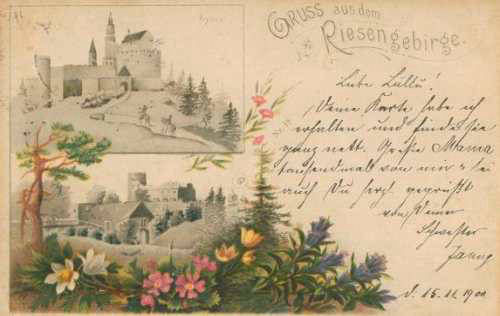 Gruss aus dem
Riesengebirge.
Liebe Lully!
Deine Karte habe ich
erhalten und finde sie
ganz nett. Grüße Mama
tausendmal von mir & sei
auch Du herzl. gegrüßt
von Deiner
Schwester
d. 15.11.1900